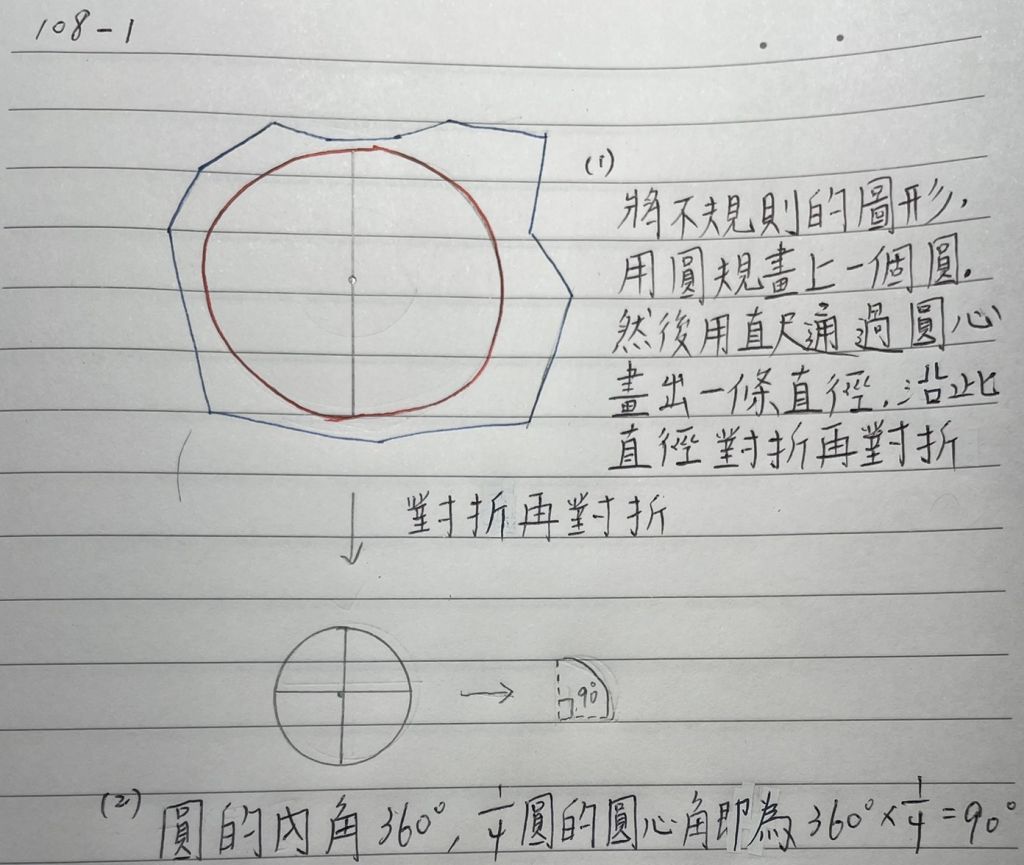 108-1
(1)
將不規則的圖形,
用圓規畫上一個圓.
然後用直尺通過圓心
畫出一條直徑.沿此
直徑對折再對折
對折再對折
90°
(2) 圓的內角360°, 1/4圓的圓心角即為360°×1/4=90°